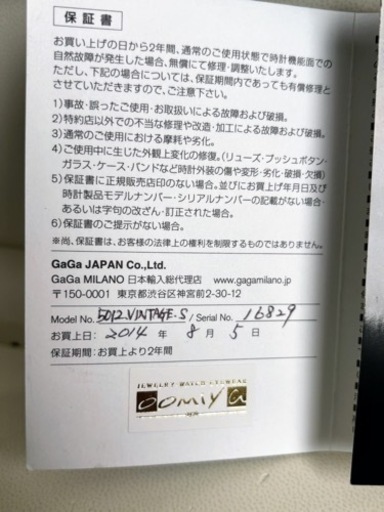 保証書
お買い上げの日から2年間、通常のご使用状態で時計機能面での
自然故障が発生した場合、無償にて修理・調整いたします。
ただし、下記の場合については、保証期間内であっても有償修理と
させていただきますので、ご注意下さい。
1)事故・誤ったご使用・お取扱いによる故障および破損。
2)特約店以外での不当な修理や改造・加工による故障および破損。
3)通常のご使用における摩耗や劣化。
4)ご使用中に生じた外観上変化の修復。(リューズ・プッシュボタン・
ガラス・ケース・バンドなど時計外装の傷や変形・劣化・破損・欠損)
5)保証書に正規販売店印のない場合。並びにお買上げ年月日及び
時計製品モデルナンバー・シリアルナンバーの記載がない場合・
あるいは字句の改ざん・訂正された場合。
6)保証書のご提示がない場合。
※尚、保証書は、お客様の法律上の権利を制限するものではありません。
GaGa JAPAN Co.,Ltd.
GaGa MILANO 日本輸入総代理店 www.gagamilano.jp
〒150-0001 東京都渋谷区神宮前2-30-12
Model No. 5012.VINTAGE.S / Serial No. 16829
お買上日: 2014 年 8 月 5 日
保証期間:お買上より2年間
JEWELRY WATCH EYEWEAR
oomiya